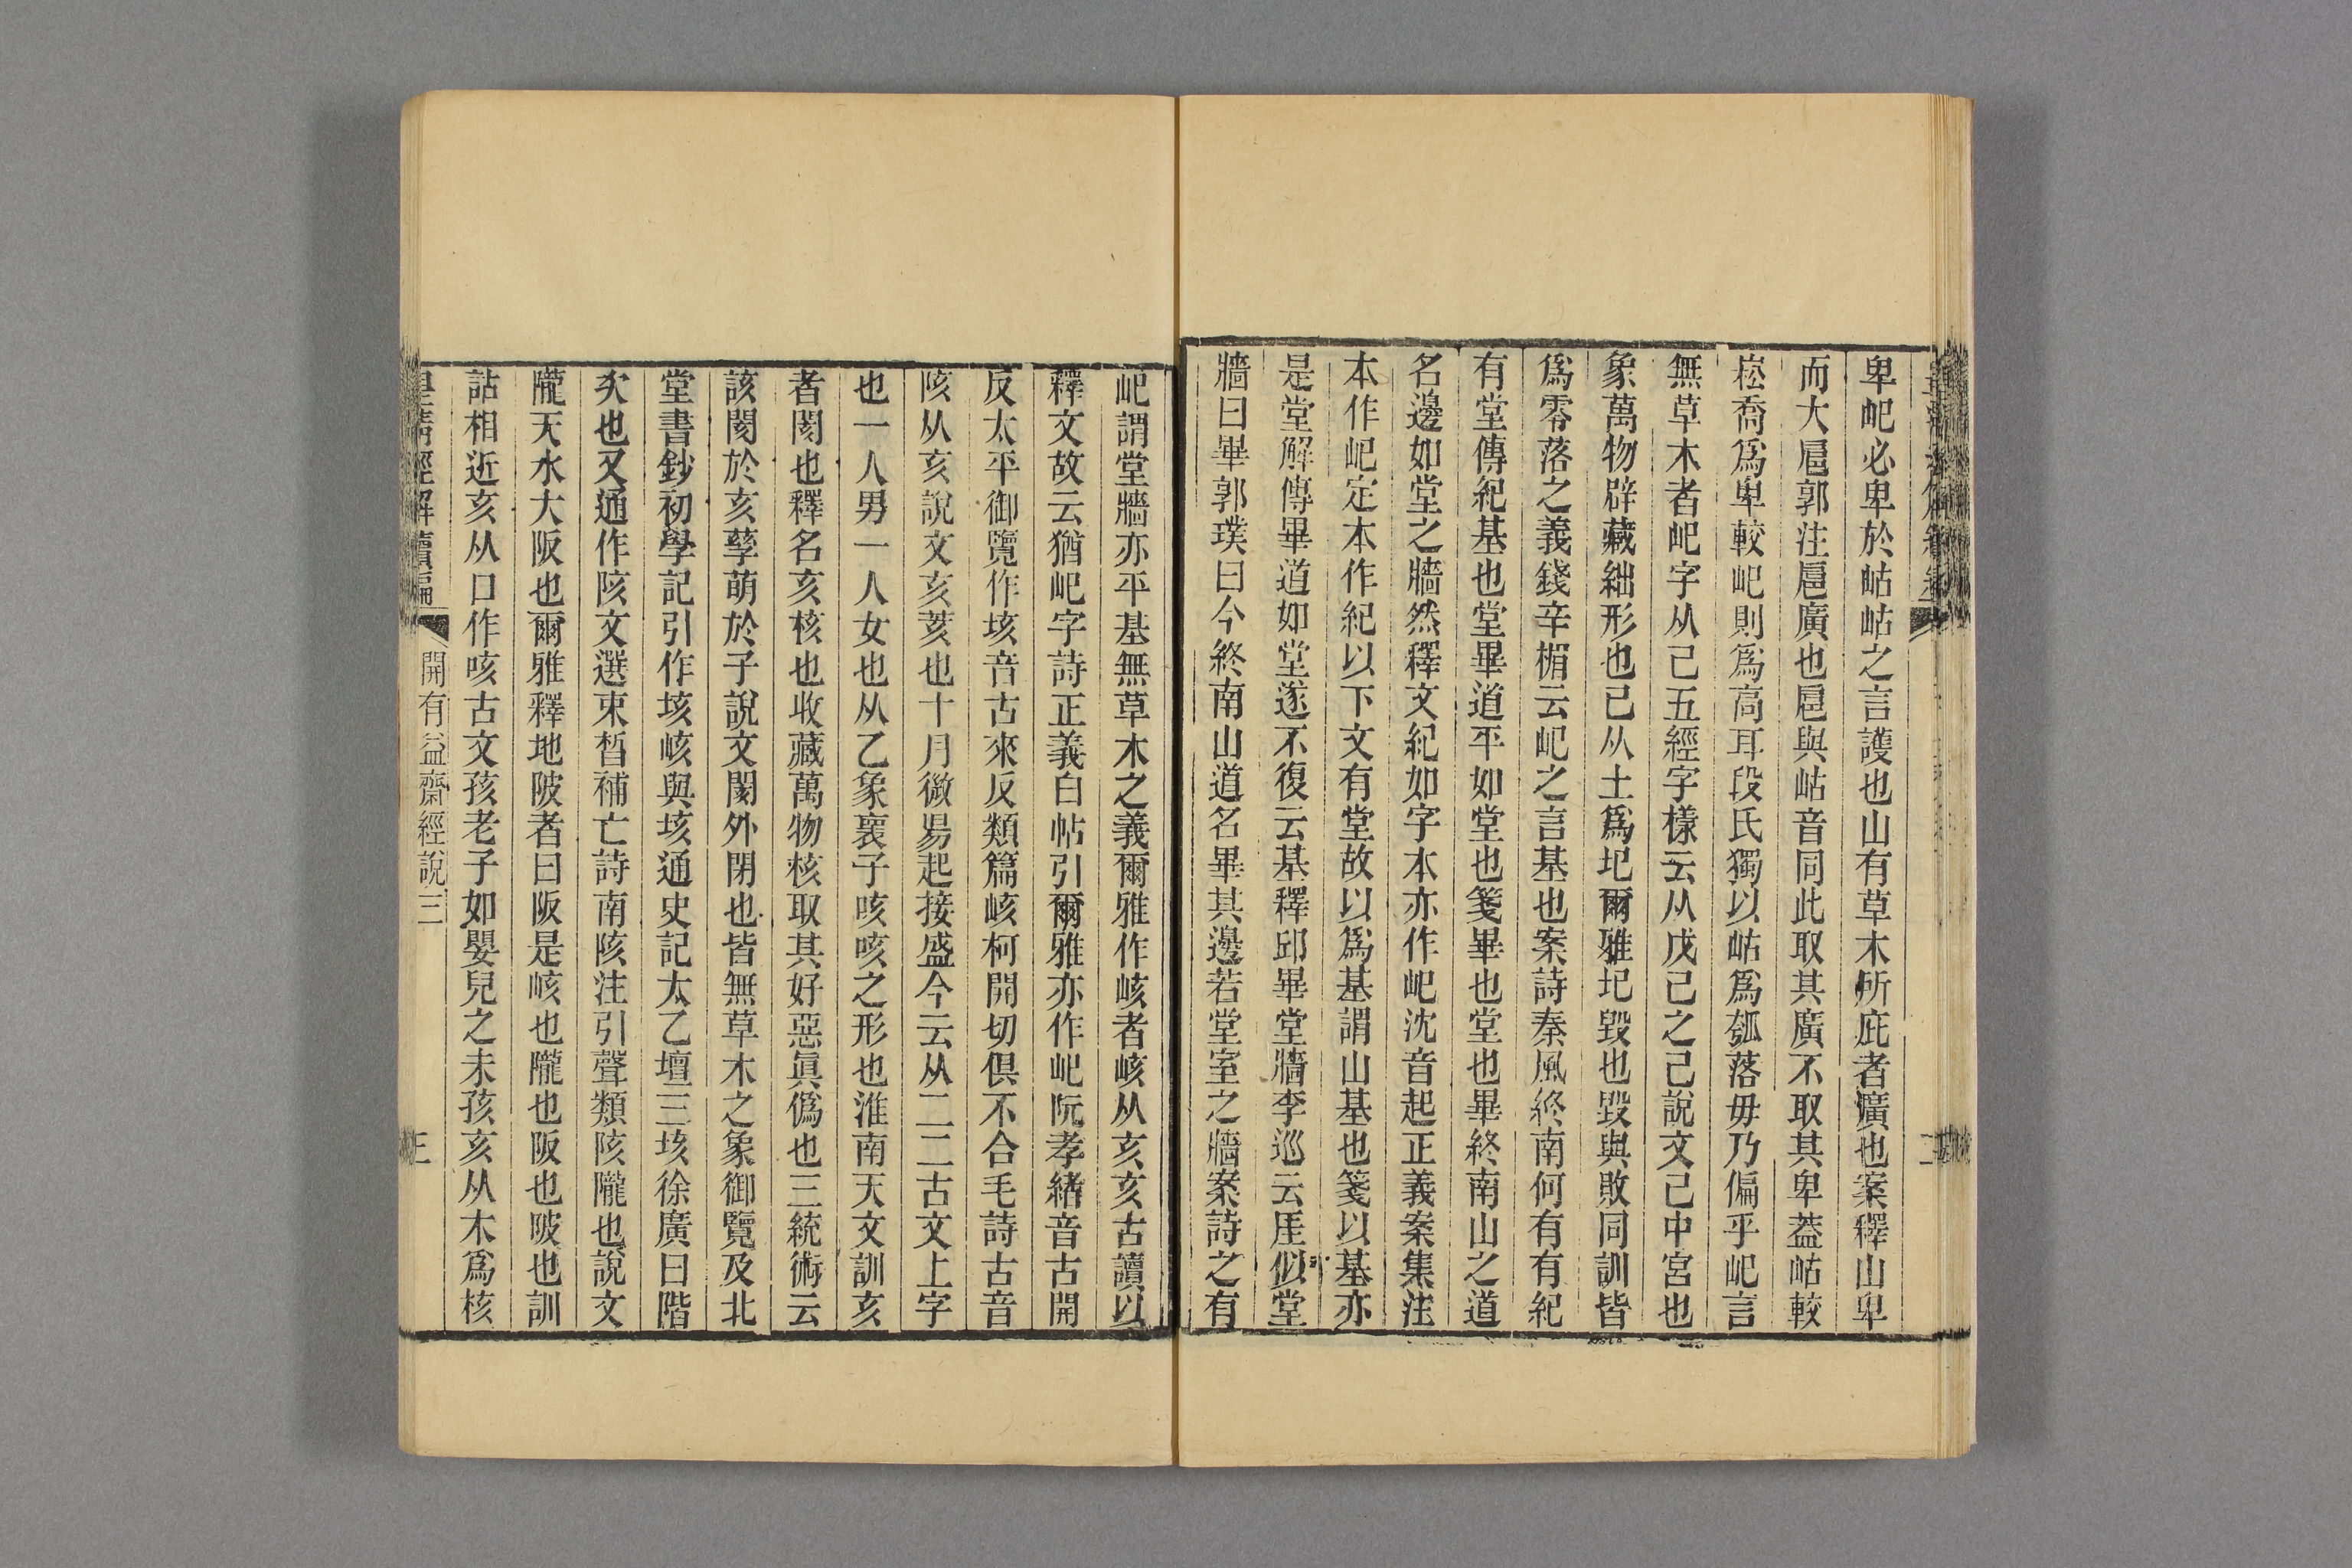 卑屺必卑於岵岵之言護也山有草木所庇者廣也案釋山卑
而大扈郭注扈廣也扈與岵音同此取其廣不取其卑葢岵較
崧喬爲卑較屺則爲高耳段氏獨以岵爲瓠落毋乃偏乎屺言
無草木者屺字从己五經字樣云从戊己之己說文己中宮也
象萬物辟藏絀形也已从土爲圯爾雅圮毀也毀與敗同訓皆
爲零落之義錢辛楣云屺之言基也案詩秦風終南何有有紀
有堂傳紀基也堂畢道平如堂也箋畢也堂也畢終南山之道
名邊如堂之牆然釋文紀如字本亦作屺沈音起正義案集注
本作屺定本作紀以下文有堂故以爲基謂山基也箋以基亦
是堂解傳畢道如堂遂不復云基釋邱畢堂牆李巡云厓似堂
牆曰畢郭璞曰今終南山道名畢其邊若堂室之牆案詩之有
屺謂堂牆亦平基無草木之義爾雅作峐者峐从亥亥古讀以
釋文故云猶屺字詩正義白帖引爾雅亦作屺阮孝緒音古開
反太平御覽作垓音古來反類篇峐柯開切俱不合毛詩古音
陔从亥說文亥荄也十月微昜起接盛今云从二二古文上字
也一人男一人女也从乙象裹子咳咳之形也淮南天文訓亥
者閡也釋名亥核也收藏萬物核取其好惡眞僞也三統術云
該閡於亥孳萌於子說文閡外閉也皆無草木之象御覽及北
堂書鈔初學記引作垓峐與垓通史記太乙壇三垓徐廣曰階
次也又通作陔文選束晳補亡詩南陔注引聲類陔隴也說文
隴天水大阪也爾雅釋地陂者曰阪是峐也隴也阪也陂也訓
詁相近亥从口作咳古文孩老子如嬰兒之未孩亥从木爲核
皇淸經解續編
開有益齋經說三
三